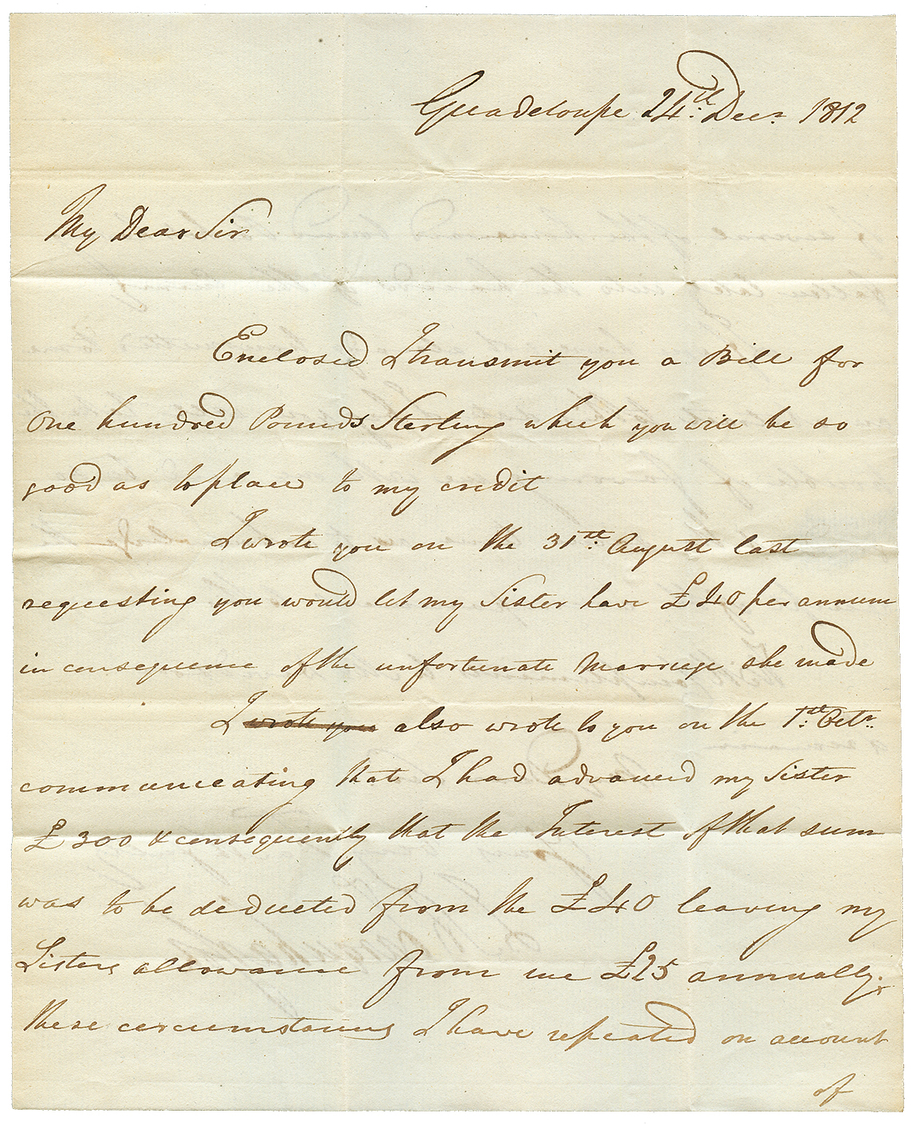 Guadeloupe 24th Decr 1812
My Dear Sir
Enclosed I transmit you a Bill for
One hundred Pounds Sterling which you will be so
good as to place to my credit
I wrote you on the 31st August last
requesting you would let my Sister have £40 per annum
in consequence of the unfortunate Marriage she made
I wrote you also wrote to you on the 1st Octr
communicating that I had advanced my Sister
£300 & consequently that the Interest of that sum
was to be deducted from the £40 leaving my
Sisters allowance from me £25 annually.
these circumstances I have repeated on account
of